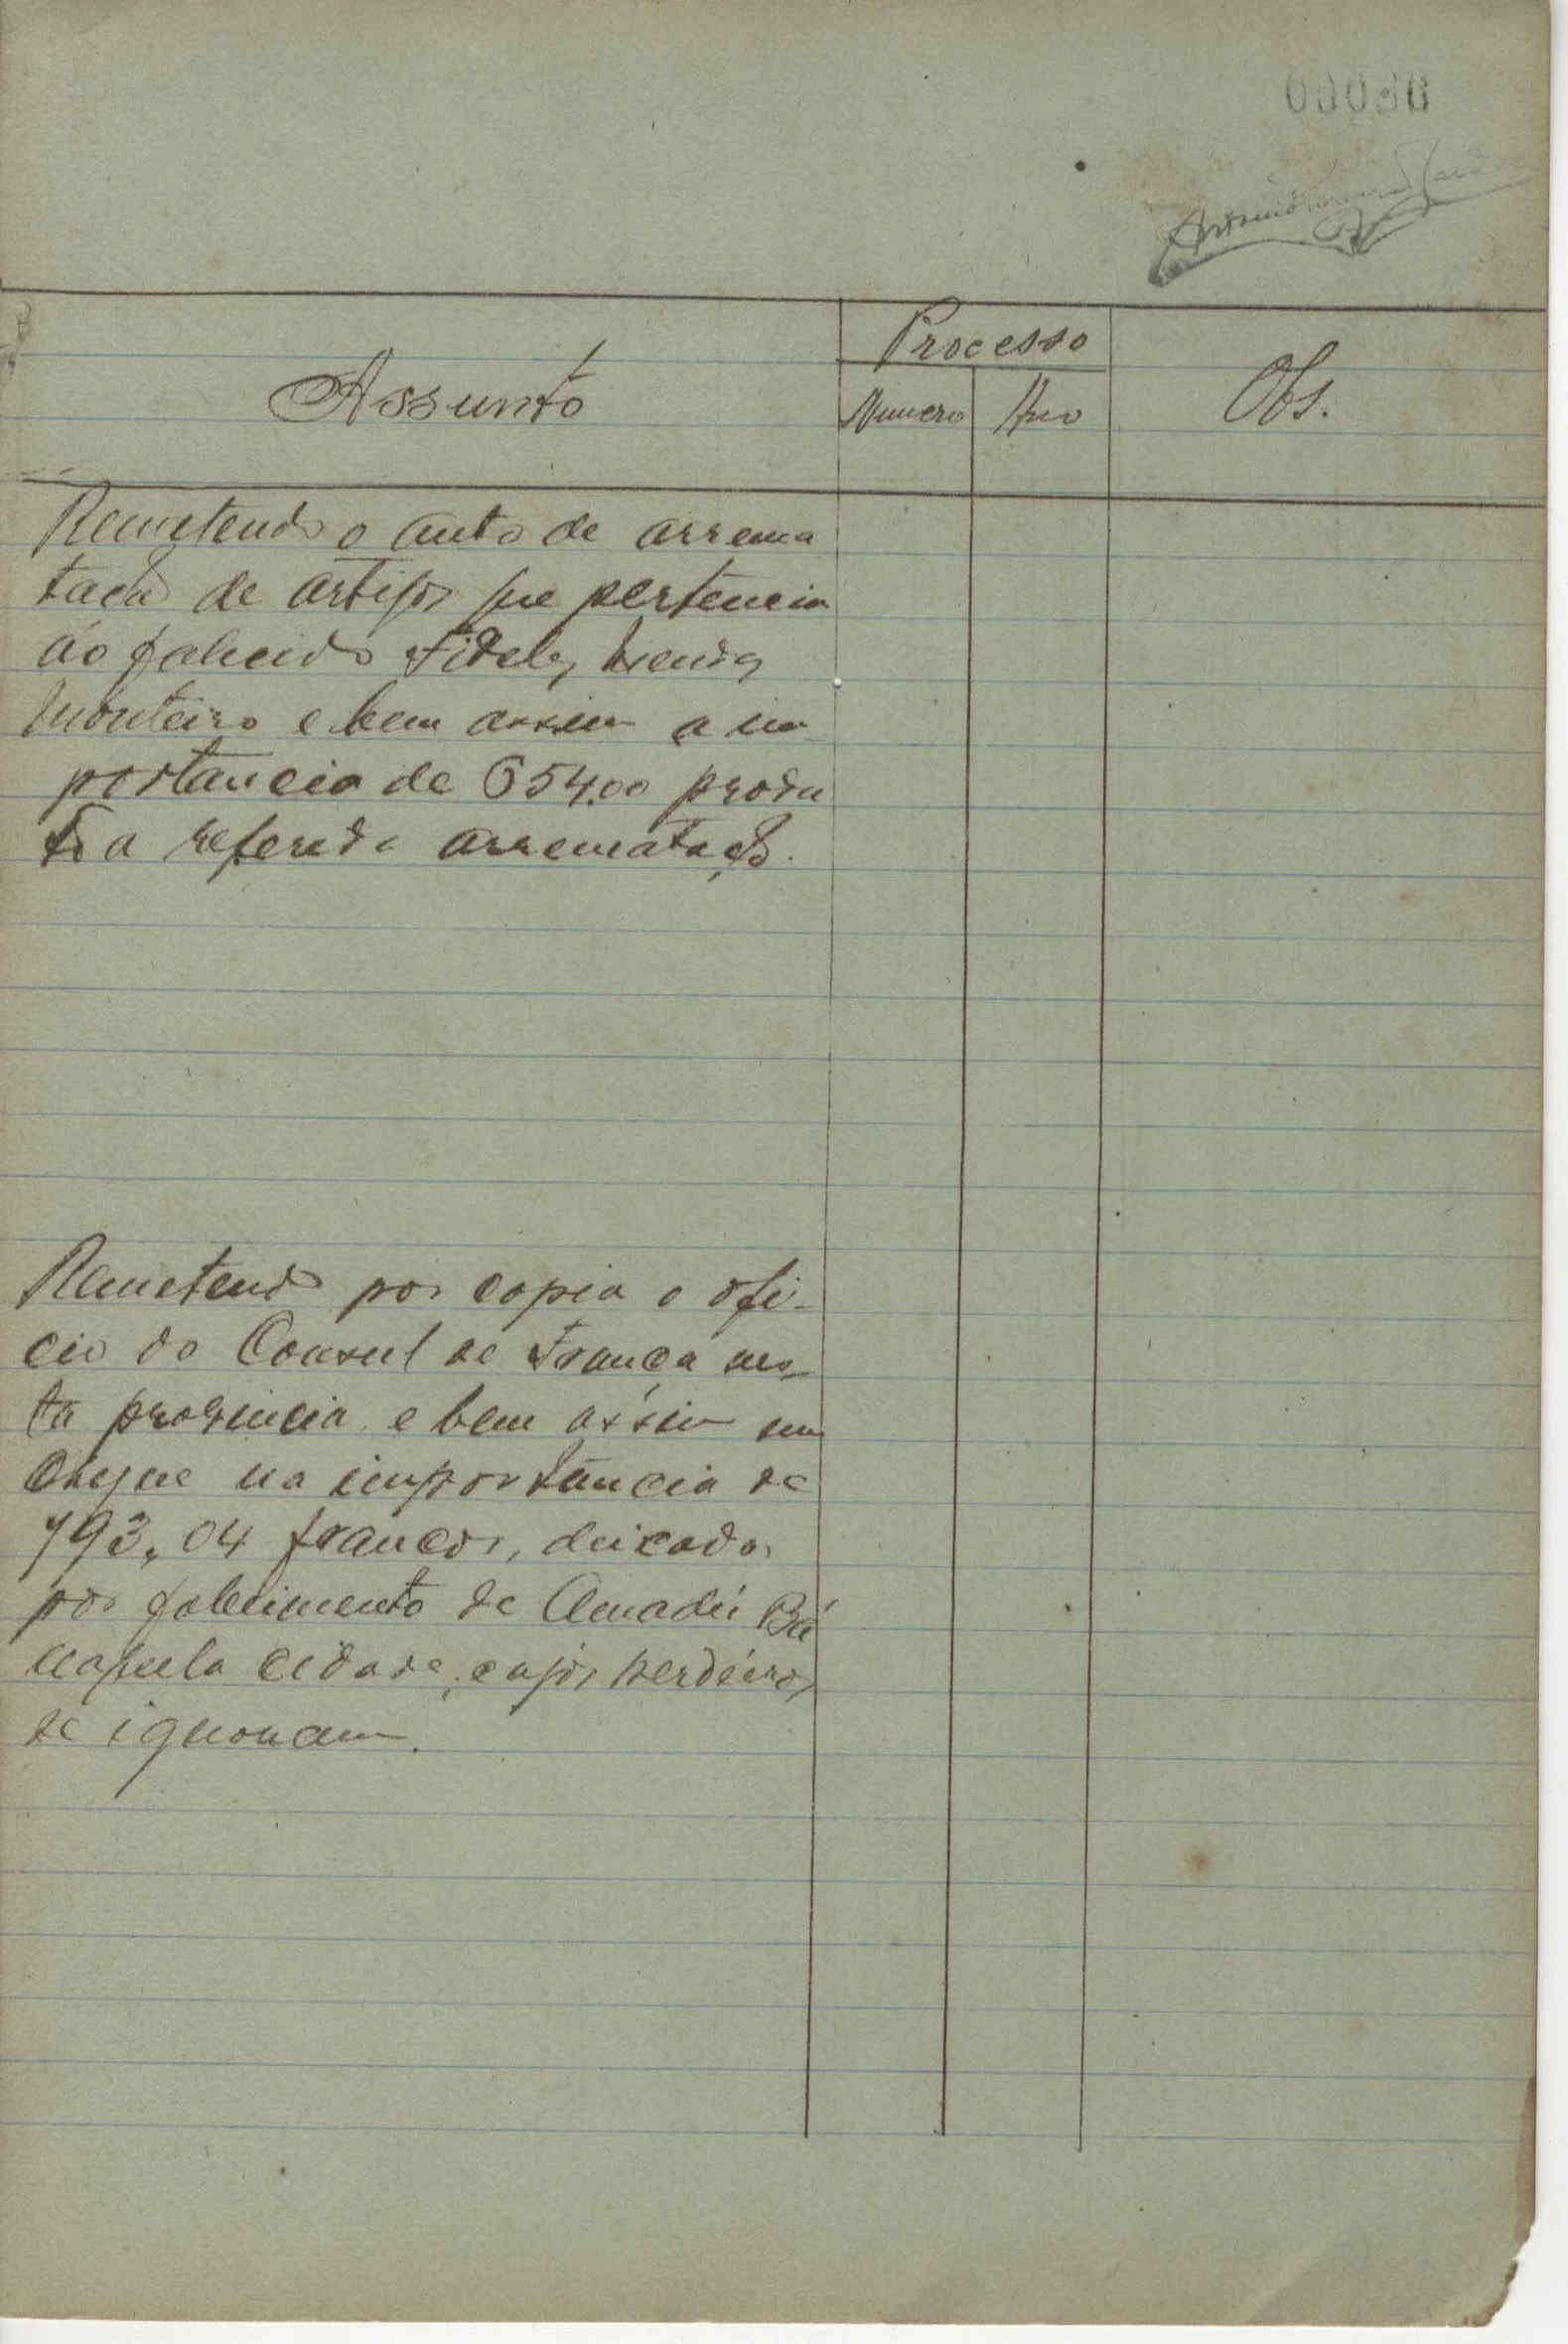 Processo
Assunto
Numero Ano
Obs.
Remetendo o auto de arrema
tação de artigos que pertencia
ao falecido Fideles
Monteiro e bem assim a im
portancia de 654.00 produ
to a referida arrematação.
Remetendo por copia o ofi-
cio do Consul de França nes-
ta provincia e bem assim um
cheque na importância de
793,04 francos, deixados
por falecimento de Amadú Bá
naquela cidade, cujos herdeiros
se ignoram.